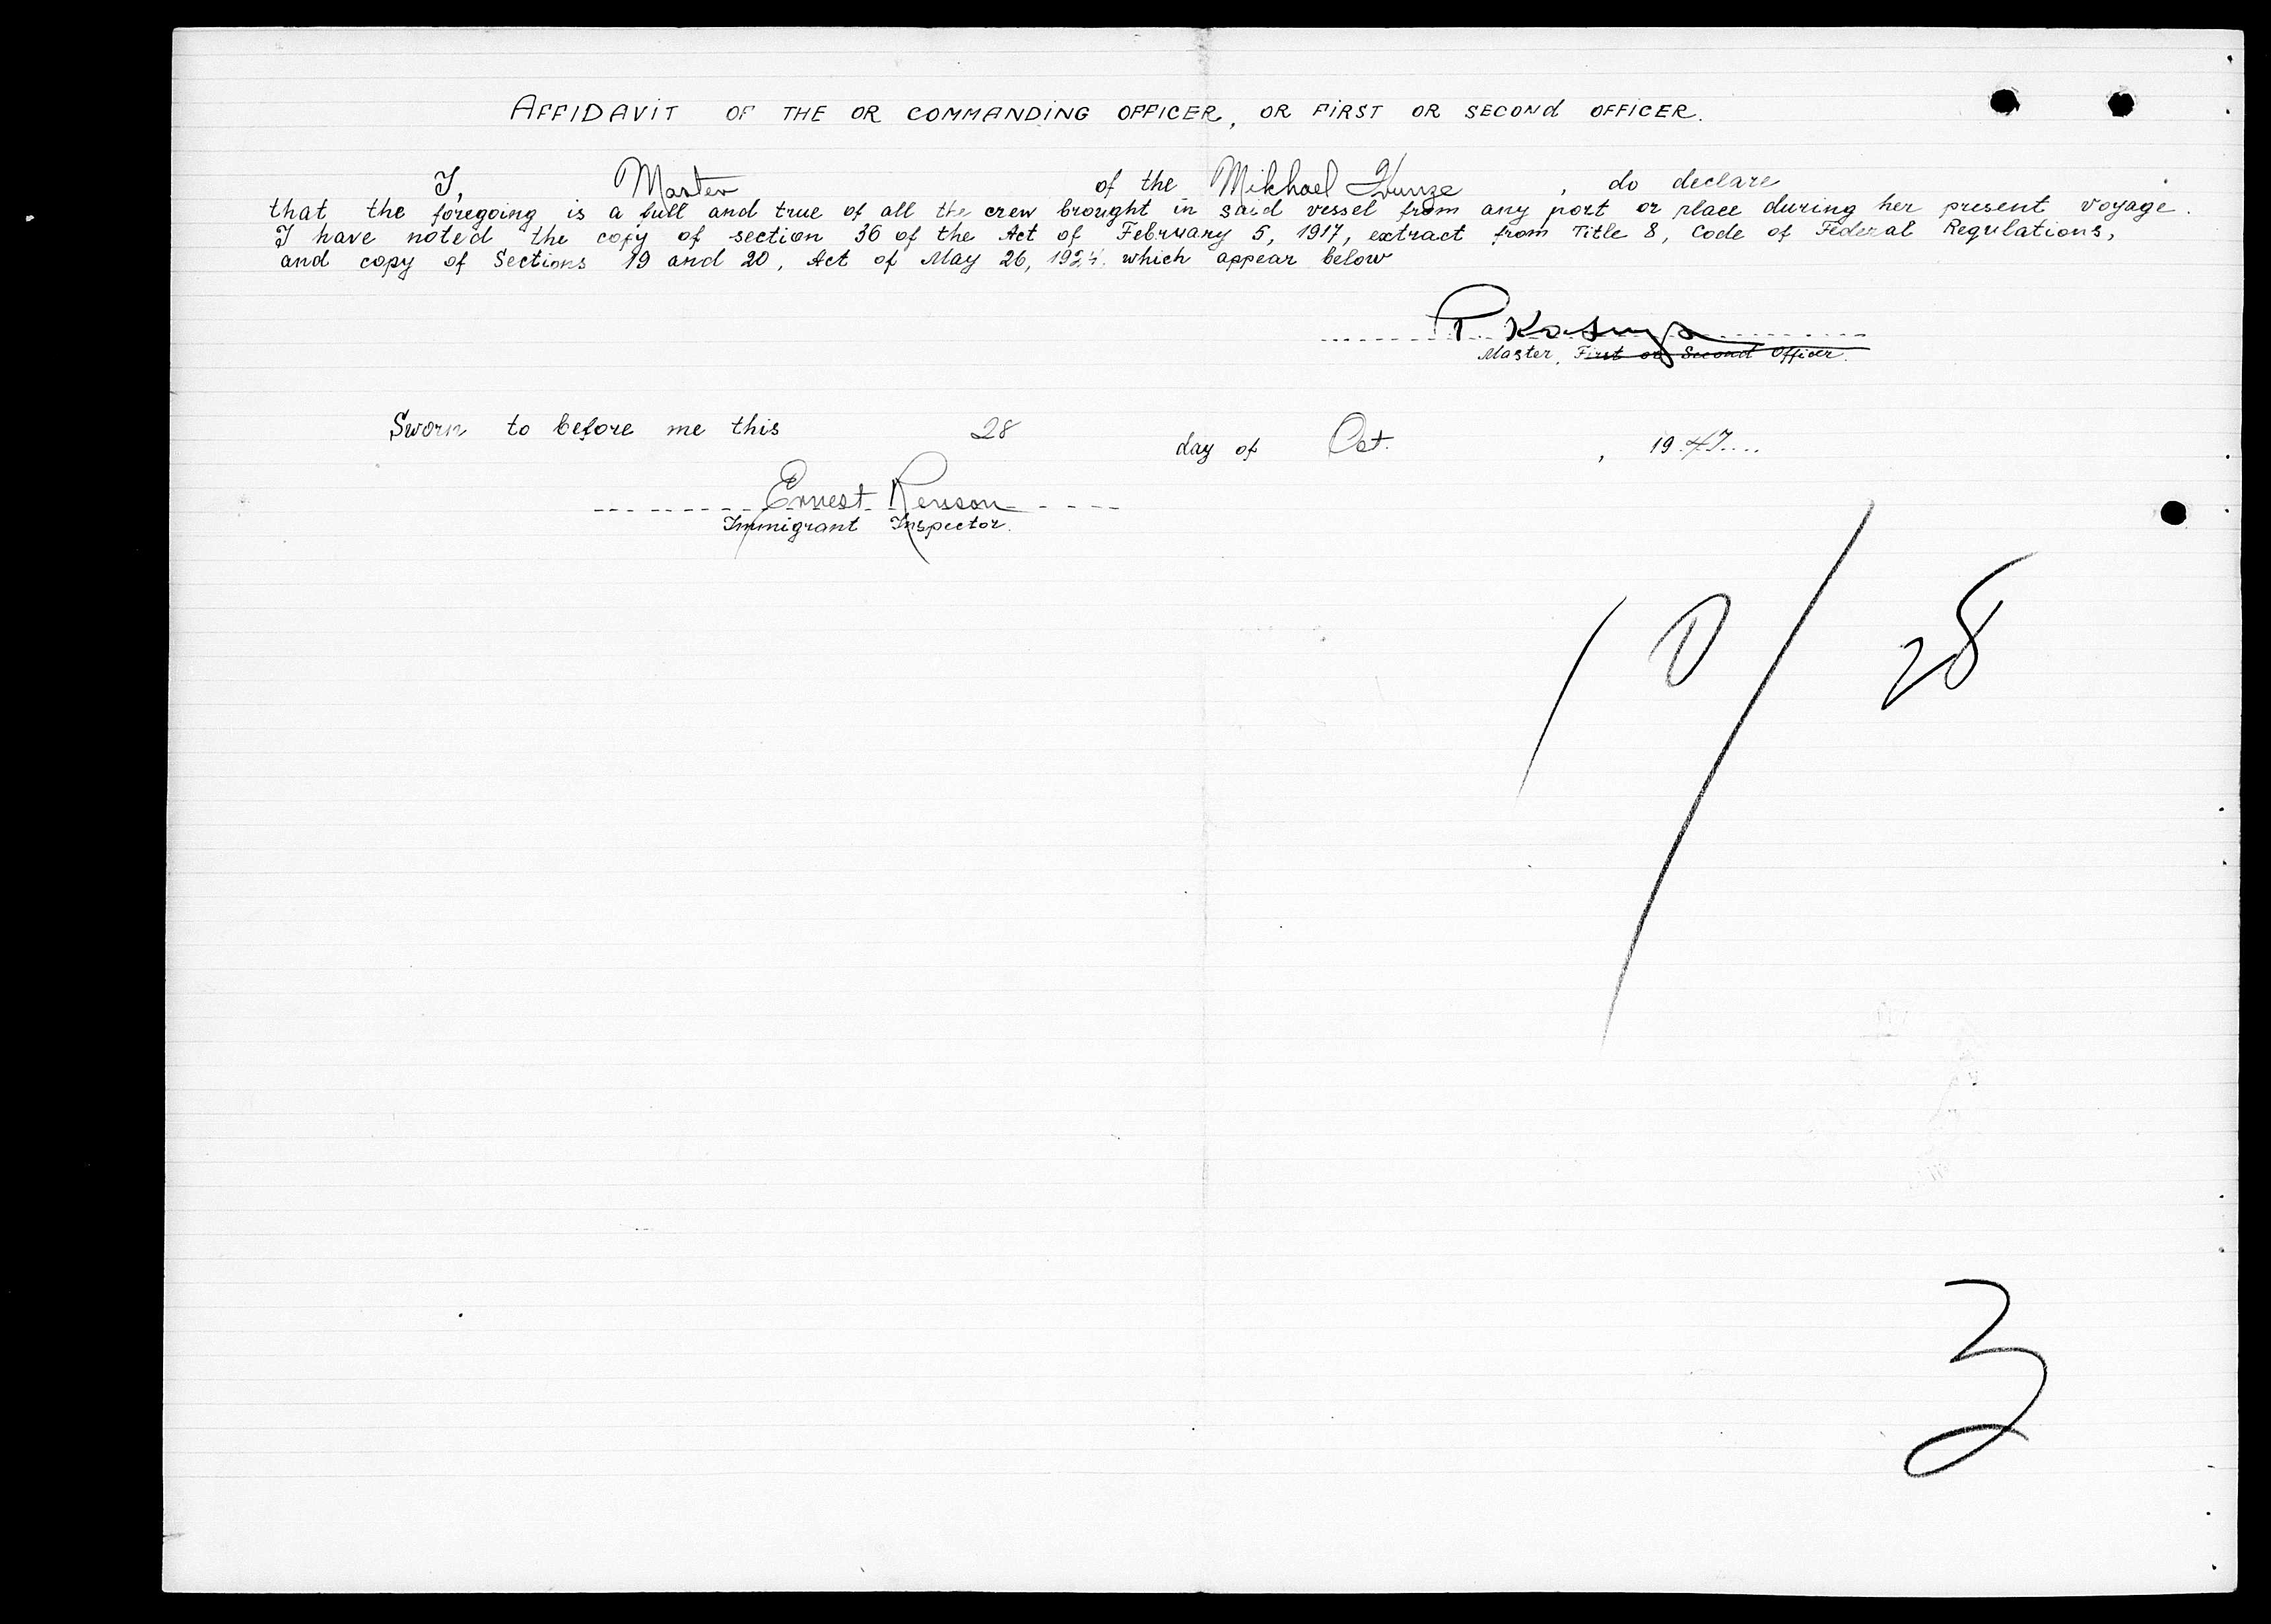 AFFIDAVIT OF THE OR COMMANDING OFFICER, OR FIRST OR SECOND OFFICER.
I, Master of the Mikhael Kunze, do declare
that the foregoing is a full and true of all the crew brought in said vessel from any port or place during her present voyage.
I have noted the copy of section 36 of the Act of February 5, 1917, extract from Title 8, Code of Federal Regulations,
and copy of Sections 19 and 20, Act of May 26, 1924. which appear below
Master, First or Second Officer.
Sworn to before me this 28 day of Oct., 1947....
Ernest
Immigrant Inspector.
10/28
3